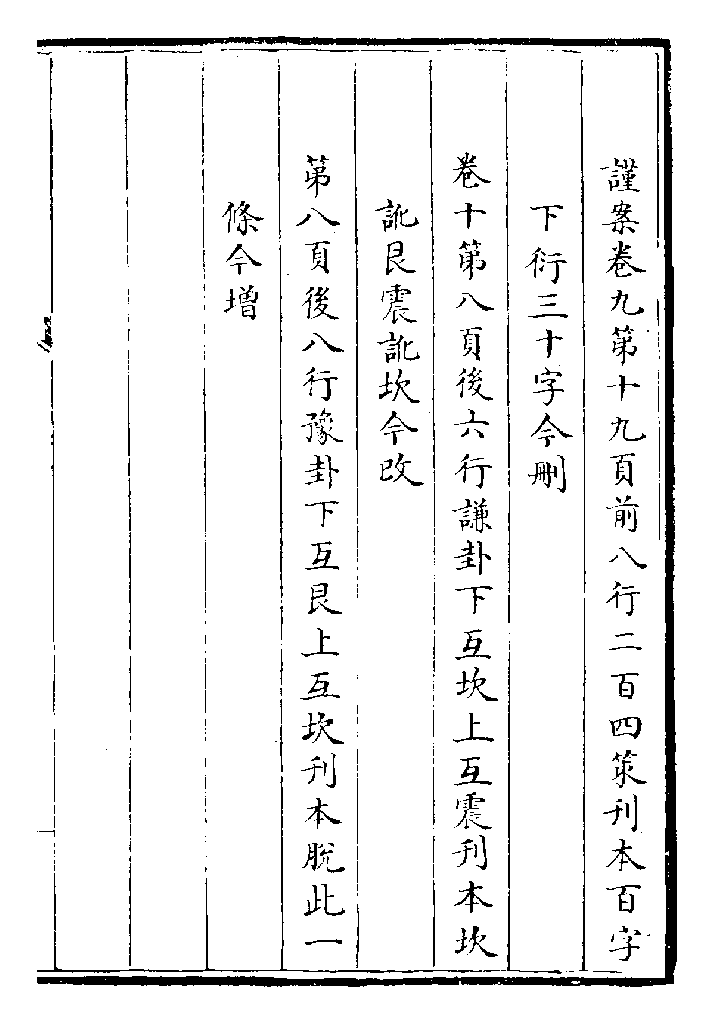 謹案卷九第十九頁前八行二百四策刋本百字
下衍三十字今刪
卷十第八頁後六行謙卦下互坎上互震刋本坎
訛艮震訛坎今改
第八頁後八行豫卦下互艮上互坎刋本脫此一
條今增